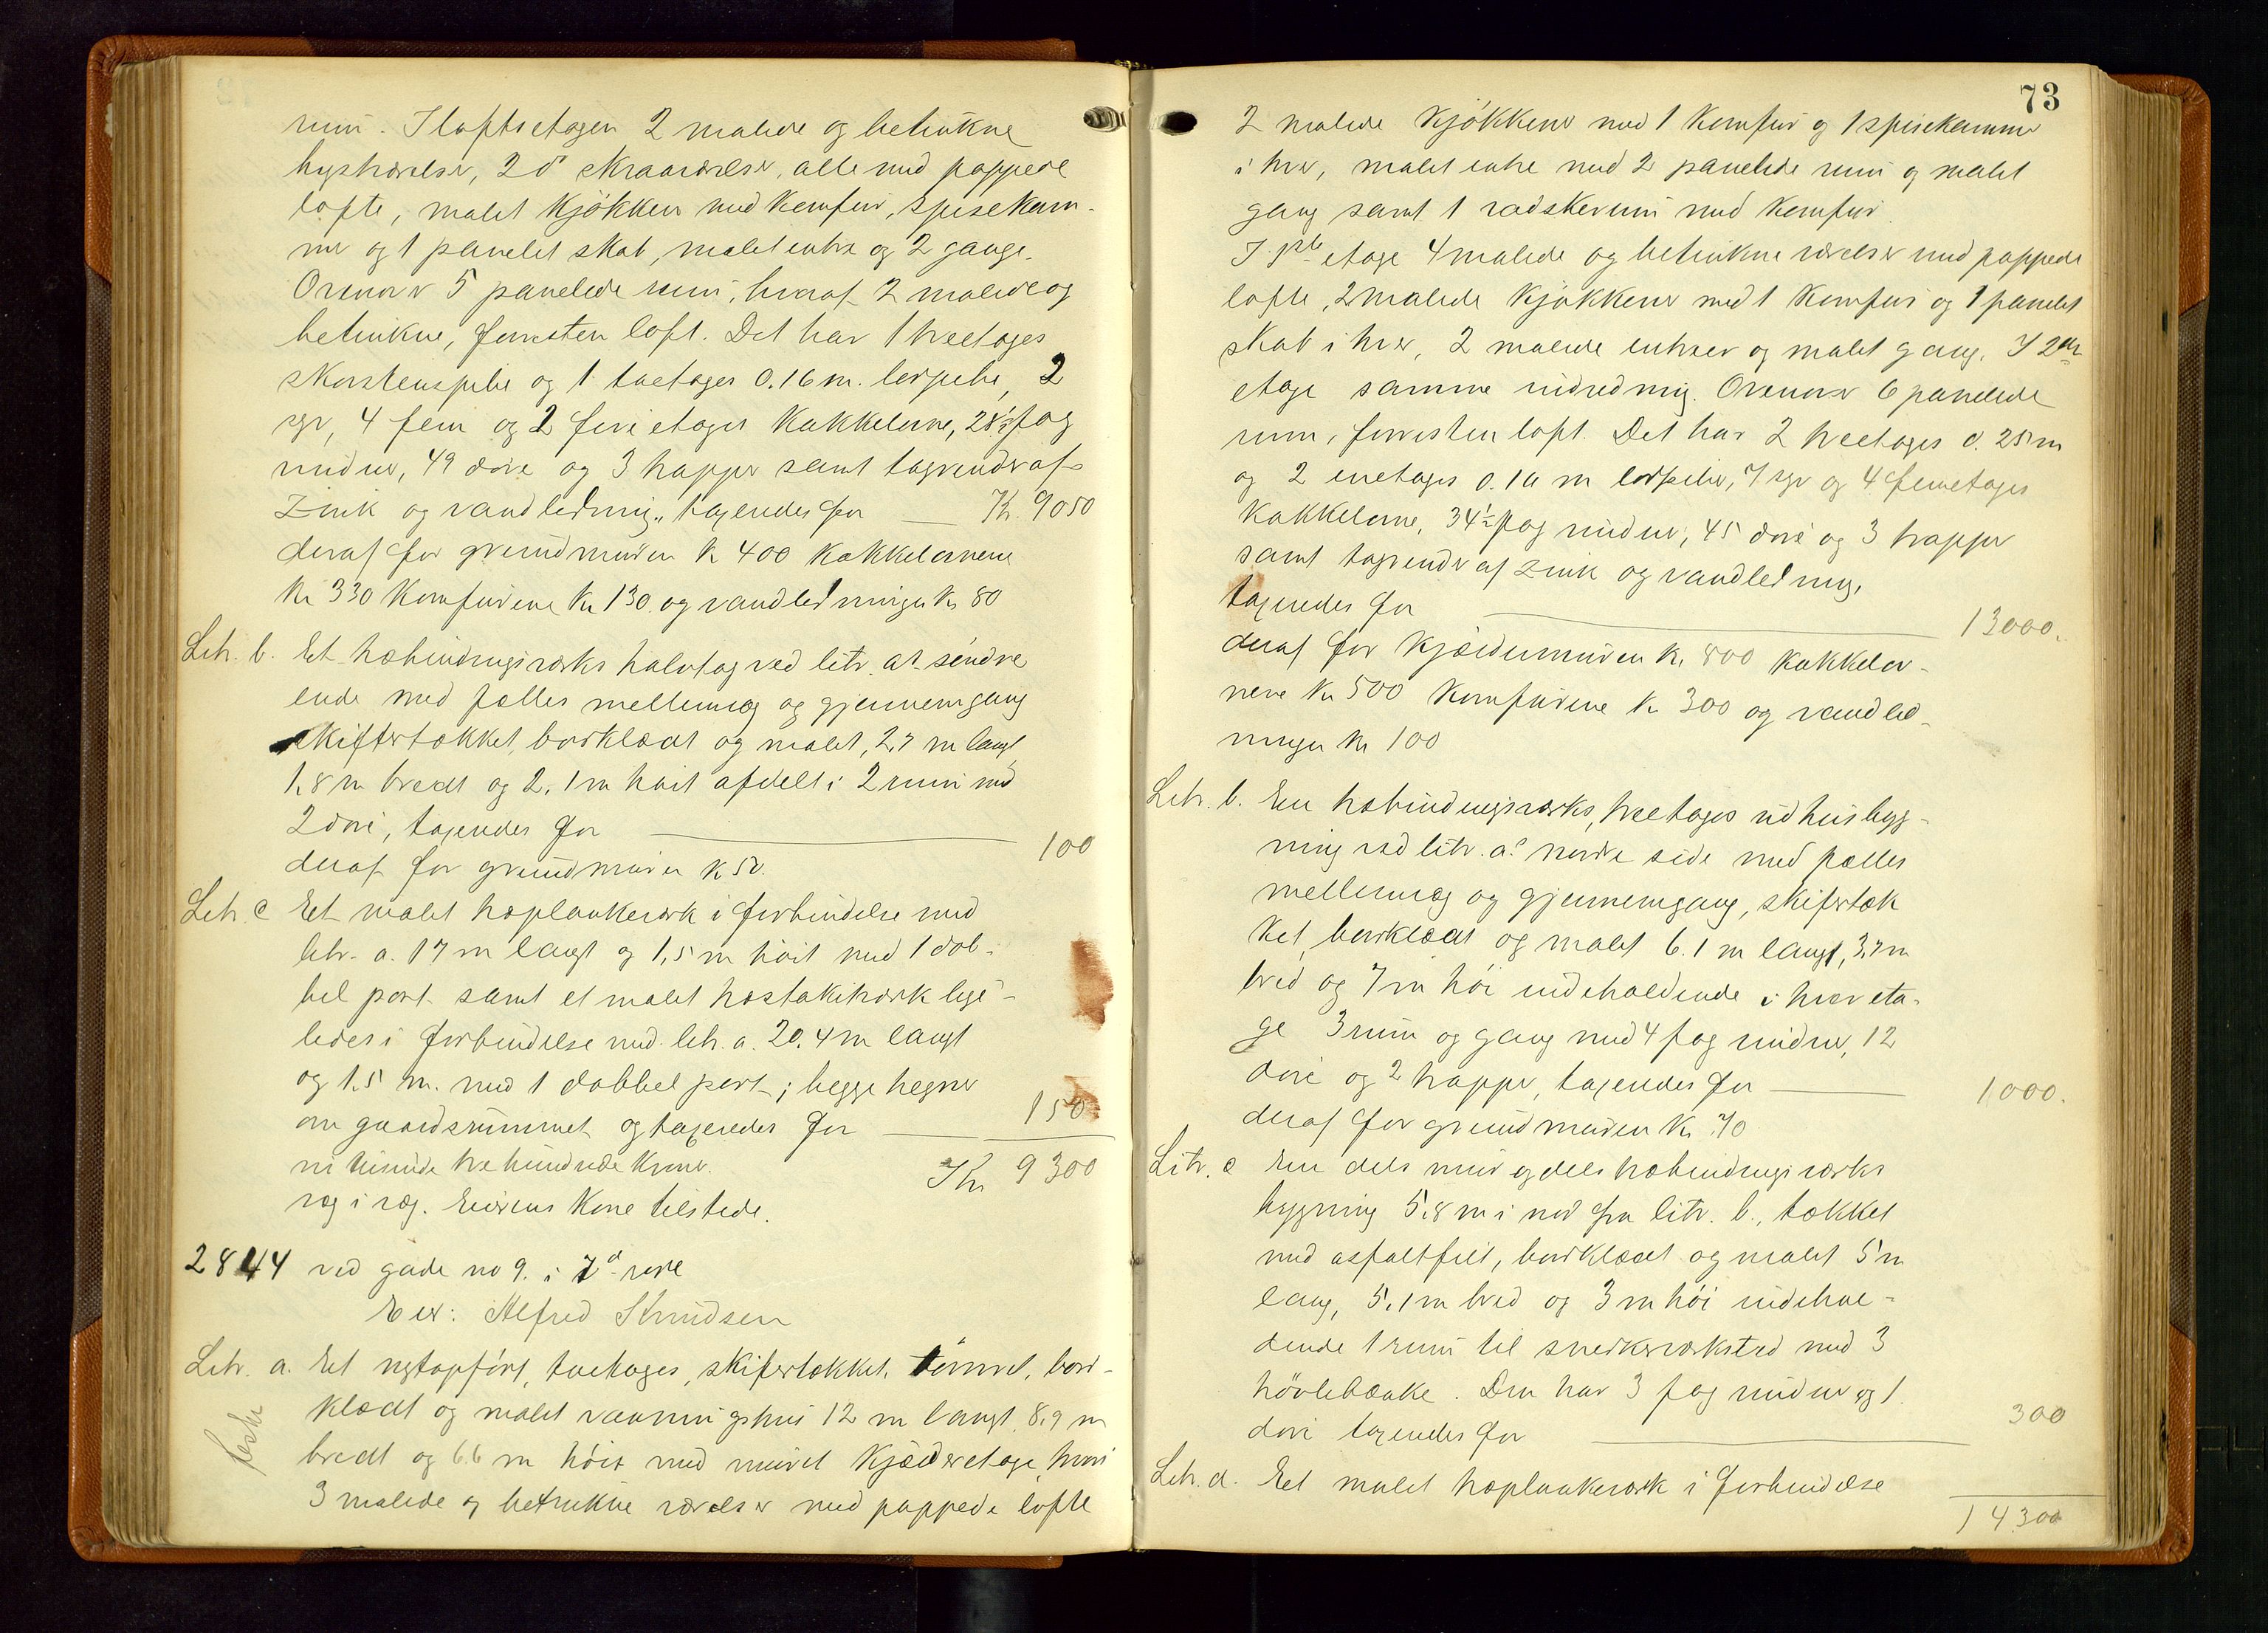 rum. I loftsetagen 2 malede og betrukne
kvistværelser, 2 do skraaværelser, alle med pappede
lofte, malet kjøkken med komfur, spisekam-
mer og 1 panelet skab, malet entre og 2 gange.
Ovenover 5 panelede rum, hvoraf 2 malede og
betrukne, forresten loft. Det har 1 treetages
skorstenspibe og 1 toetages 0.16 m. lerpibe, 2
4 fem og 2 fire etages kakkelovne, 28½ fag
vinduer, 49 døre og 3 trapper samt tagrender af
zink og vandledning, taxeredes for — Kr. 9050
deraf for grundmuren kr 400 kakkelovnene
kr 330 komfurene kr 130 og vandledningen kr 80
Litr. b. Et træbindingsværks halvtag ved litr. a's søndre
ende med fælles mellemvæg og gjennemgang
skiftertækket, bordklædt og malet, 2,7 m langt
1,8 m bredt og 2,1 m høit afdelt i 2 rum med
2 døre, taxeredes for — 100
deraf for grundmuren kr 50.
Litr. c Et malet træplankeværk i forbindelse med
litr. a. 17 m langt og 1,5 m høit med 1 dob-
bel port samt et malet træstakitværk lige-
ledes i forbindelse med litr. a. 20.4 m langt
og 1.5 m. med 1 dobbel port; begge hegner
om gaardsrummet og taxeredes for — 150
ni tusinde tre hundrede kroner. Kr 9300
Eierens kone tilstede.
2844 ved gade no 9. i 7d rode
Eier: Alfred Knudsen
Litr. a. Et nytopført, toetages, skifertækket, tømret, bord-
klædt og malet vaaningshus 12 m langt, 8,9 m
bredt og 6.6 m høit med muret kjælderetage, hvori
3 malede og betrukne værelser med pappede lofte
73
2 malede kjøkkener med 1 komfur og 1 spisekammer
i hver, malet entre med 2 panelede rum og malet
gang samt 1 rum med komfur.
I 1ste etage 4 malede og betrukne værelser med pappede
lofte, 2 malede kjøkkener med 1 komfur og 1 panelet
skab i hver, 2 malede entreer og malet gang. I 2den
etage samme indredning. Ovenover 6 panelede
rum, forresten loft. Det har 2 treetages 0.25 m
og 2 enetages 0.16 m lerpiber, 7 og 4 femetages
kakkelovne, 34½ fag vinduer, 45 døre og 3 trapper
samt tagrender af zink og vandledning,
taxeredes for — 13000.
deraf for kjældermuren kr. 800 kakkelov-
nene kr 500 komfurene kr 300 og vandled-
ningen kr 100
Litr. b. En træbindingsværks, treetages udhusbyg-
ning ved litr. a's nordre side med fælles
mellemvæg og gjennemgang, skifertæk
ket, bordklædt og malet 6.1 m langt, 3,7 m
bred og 7 m høi indeholdende i hver eta-
ge 3 rum og gang med 4 fag vinduer, 12
døre og 2 trapper, taxeredes for — 1000.
deraf for grundmuren kr. 70
Litr. c En dels mur og dels træbindingsværks
bygning 5,8 m i nord fra litr. b., tækket
med asfaltfilt, bordklædt og malet 5 m
lang, 5,1 m bred og 3 m høi indehol-
dende 1 rum til snedkerværksted med 3
høvlebænke. Den har 3 fag vinduer og 1
døre taxeredes for — 300
Litr. d. Et malet træplankeværk i forbindelse
14300